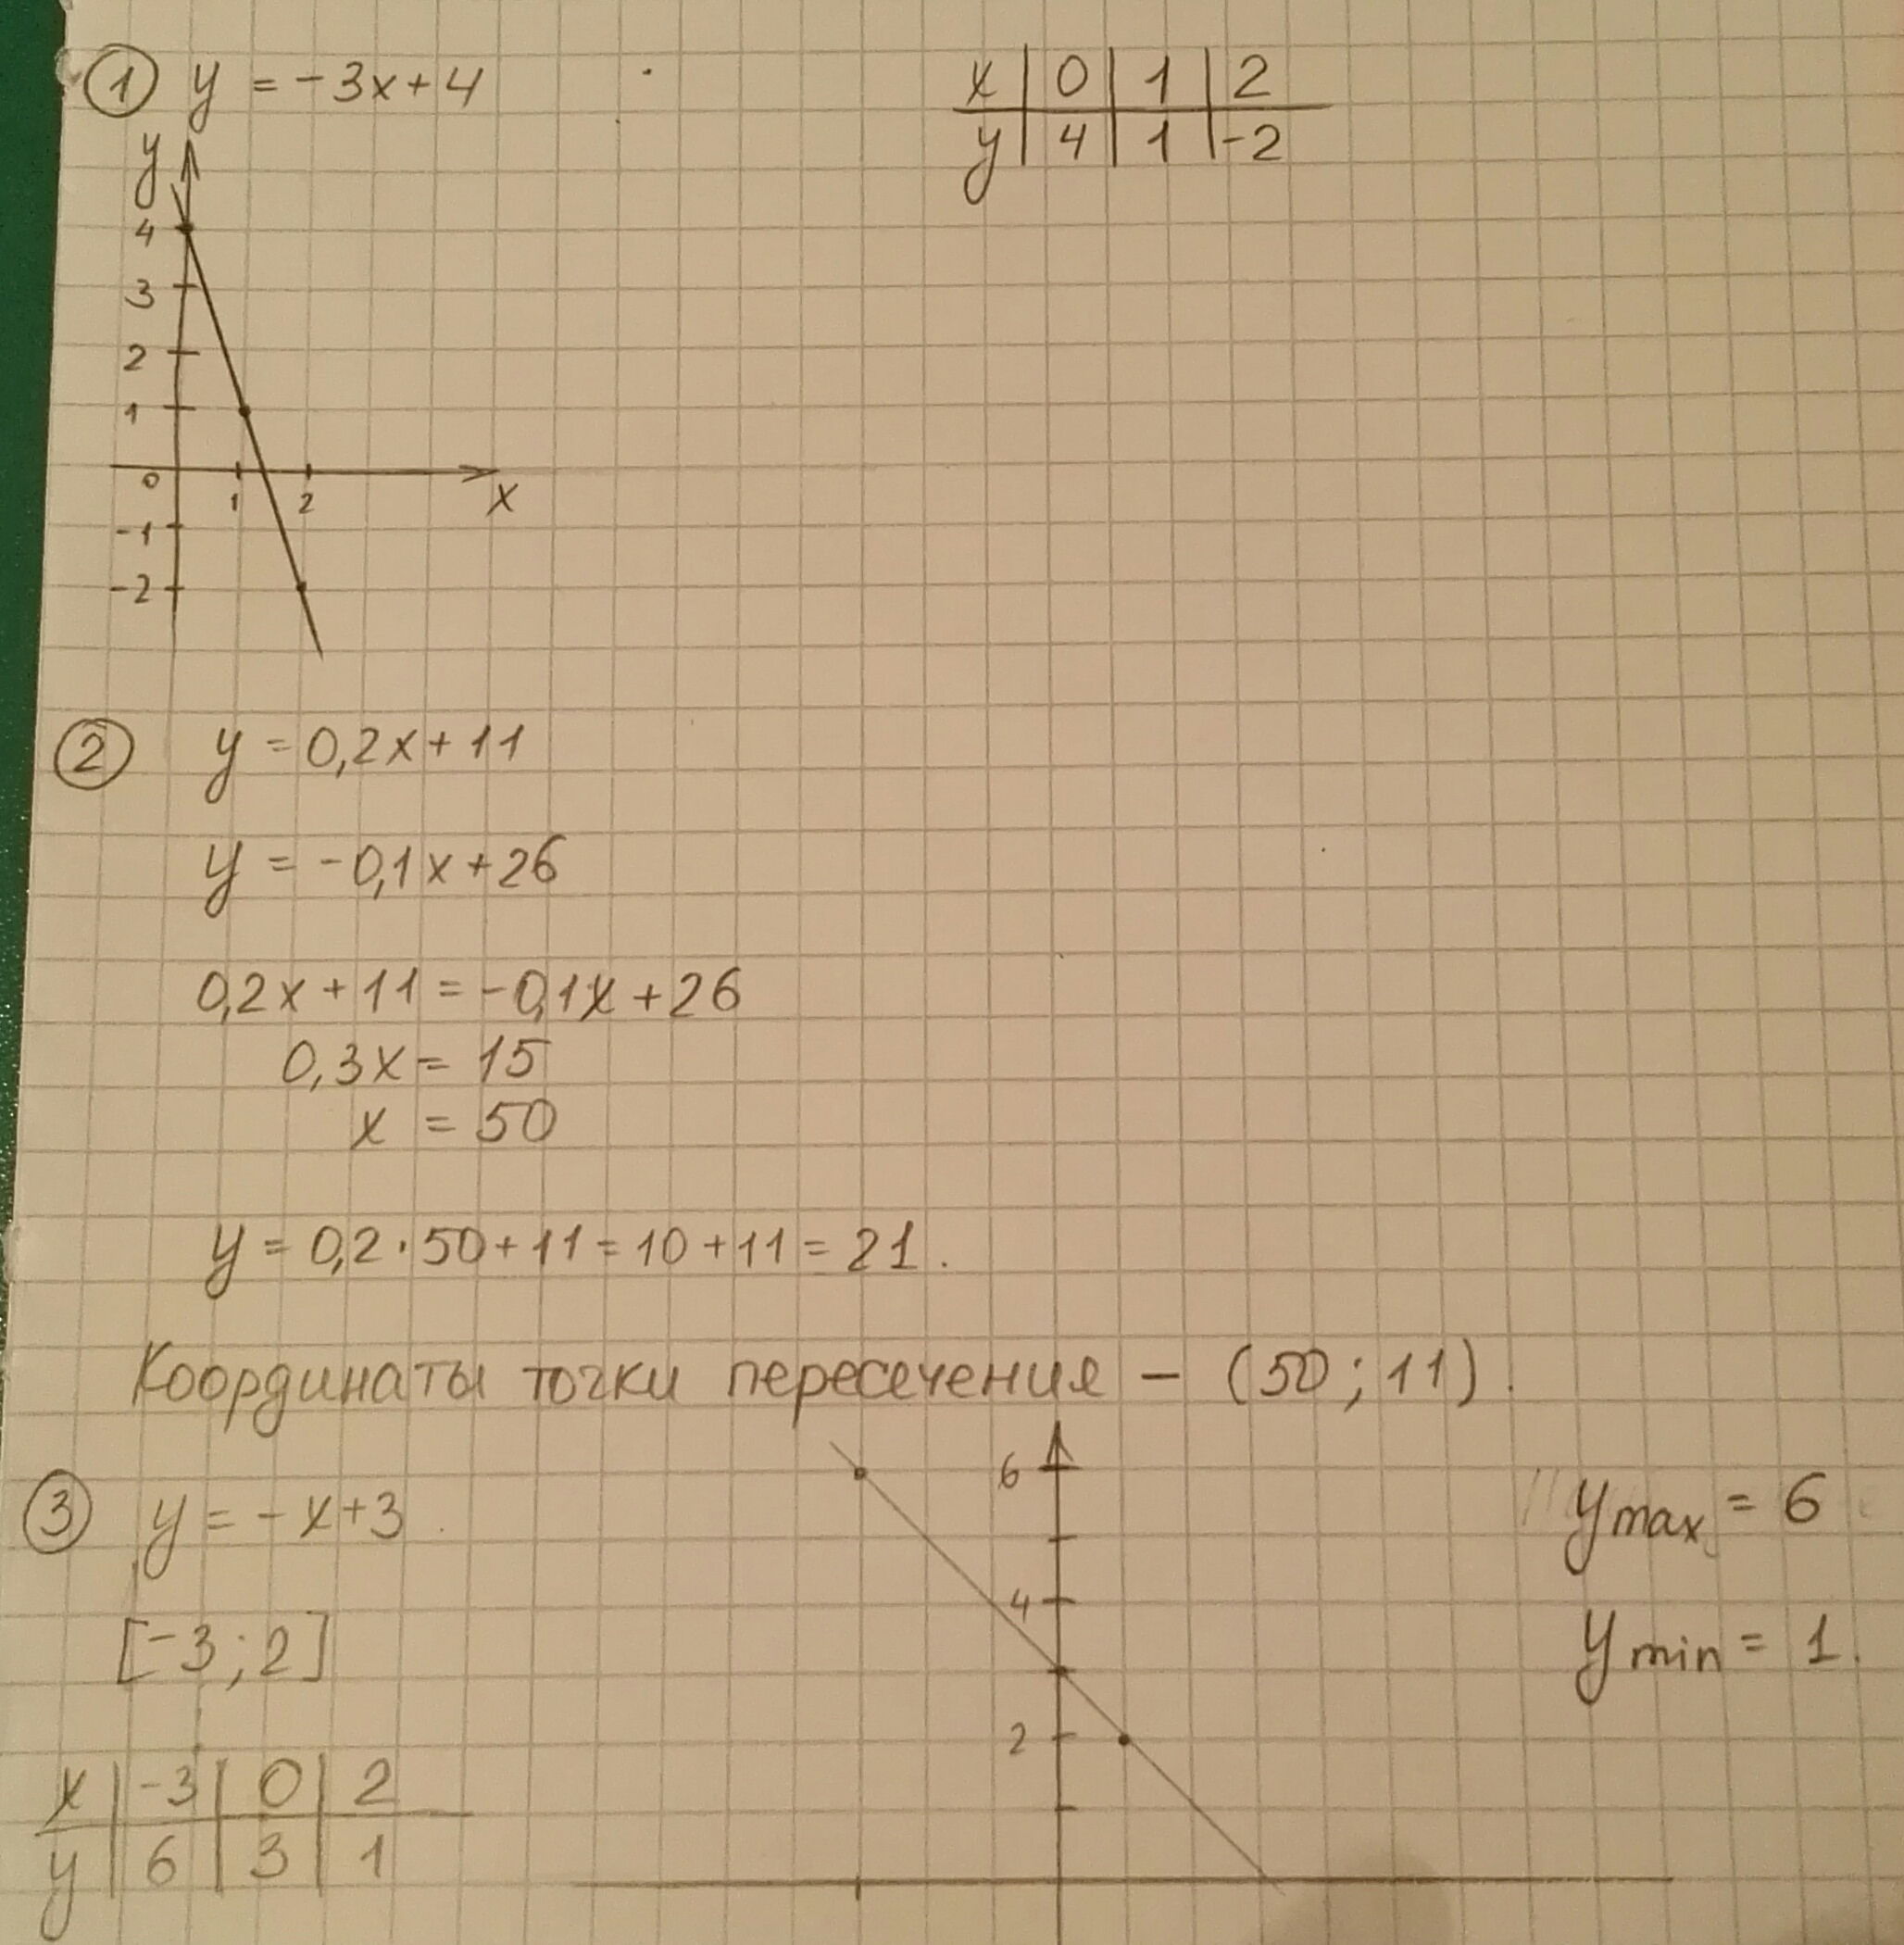 ① y = -3x+4
x | 0 | 1 | 2
y | 4 | 1 | -2
y
4
3
2
1
0
1 2 x
-1
-2
② y = 0,2x+11
y = -0,1x+26
0,2x+11=-0,1x+26
0,3x= 15
x = 50
y = 0,2·50+11=10+11=21.
Координаты точки пересечения – (50;11).
③ y = -x+3
[-3;2]
x | -3 | 0 | 2
y | 6 | 3 | 1
6
4
2
ymax = 6
ymin = 1.